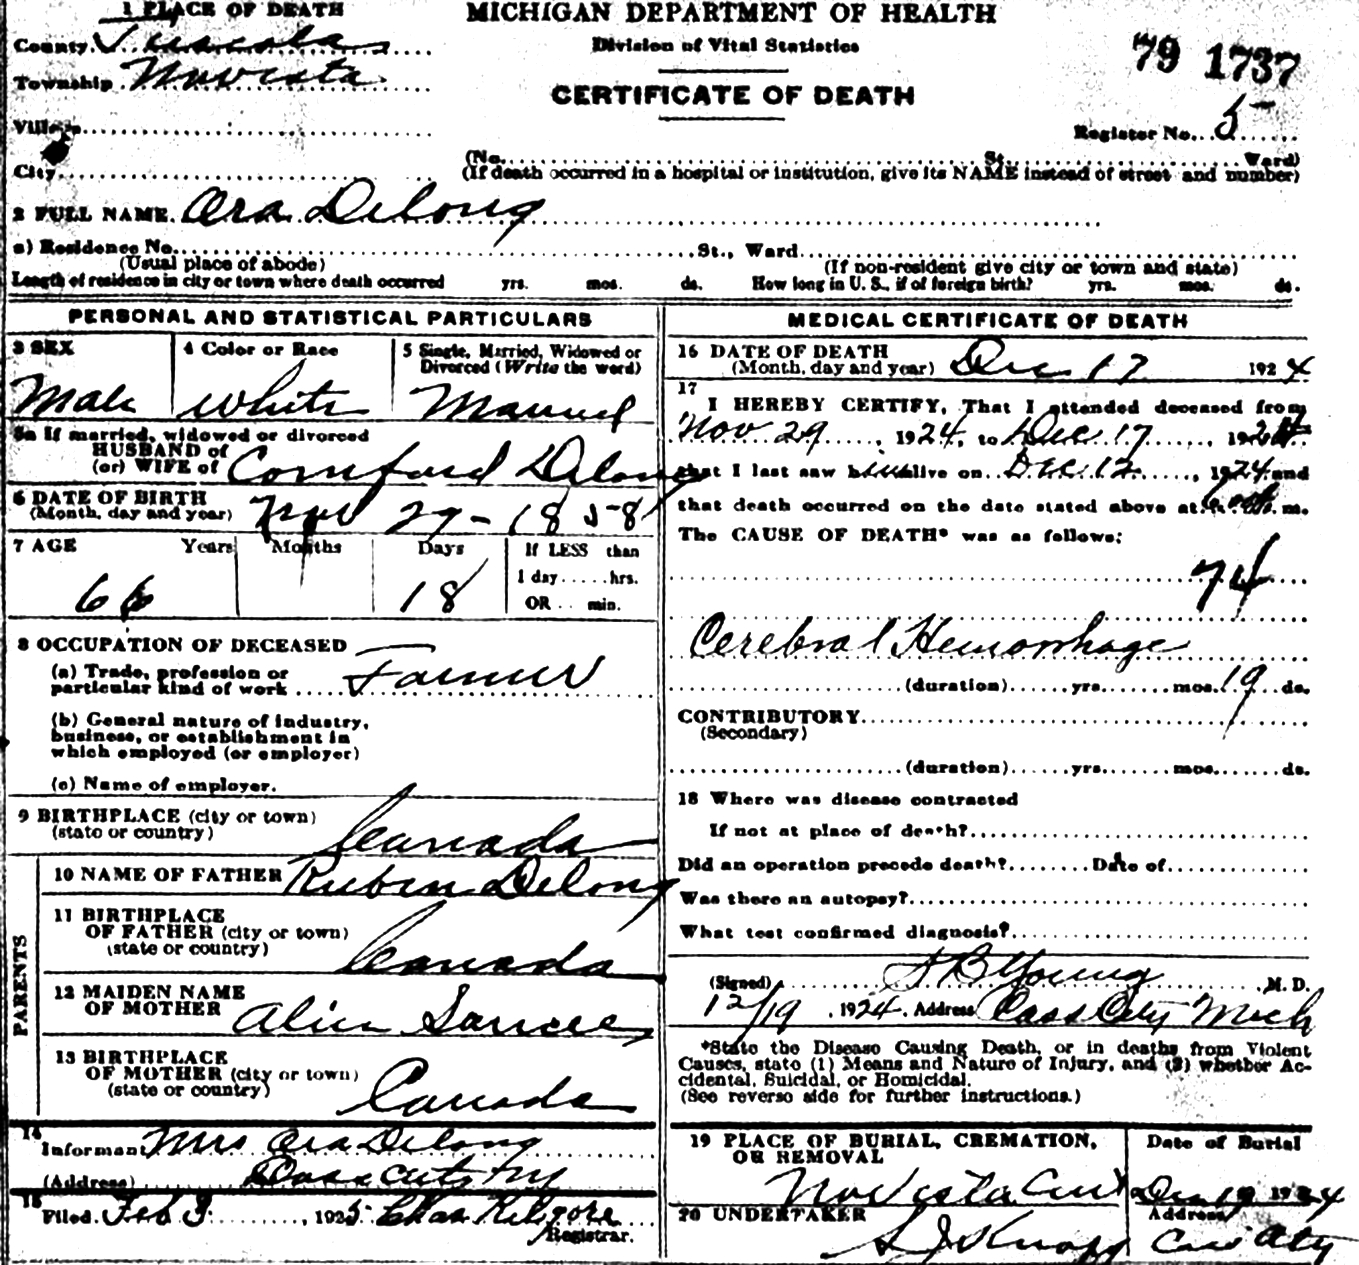 1 PLACE OF DEATH
County. Tuscola
Township. Novesta
Village
City
MICHIGAN DEPARTMENT OF HEALTH
Division of Vital Statistics
CERTIFICATE OF DEATH
79 1737
Register No. 5
(No. St. Ward)
(If death occurred in a hospital or institution, give its NAME instead of street and number)
2 FULL NAME. Ora Delong
a) Residence No. St., Ward
(Usual place of abode) (If non-resident give city or town and state)
Length of residence in city or town where death occurred yrs. mos. ds. How long in U. S., if of foreign birth? yrs. mos. ds.
PERSONAL AND STATISTICAL PARTICULARS
3 SEX 4 Color or Race 5 Single, Married, Widowed or
Divorced (Write the word)
Male White Married
5a If married, widowed or divorced
HUSBAND of
(or) WIFE of Delong
6 DATE OF BIRTH
(Month, day and year) Nov 29 - 1858
7 AGE Years Months Days If LESS than
1 day ..... hrs.
OR .. min.
66 18
8 OCCUPATION OF DECEASED
(a) Trade, profession or
particular kind of work .... Farmer
(b) General nature of industry,
business, or establishment in
which employed (or employer)
(c) Name of employer.
9 BIRTHPLACE (city or town)
(state or country) Canada
PARENTS
10 NAME OF FATHER Ruben Delong
11 BIRTHPLACE
OF FATHER (city or town)
(state or country) Canada
12 MAIDEN NAME
OF MOTHER
13 BIRTHPLACE
OF MOTHER (city or town)
(state or country) Canada
14
Informant Mrs Ora Delong
(Address) Cass City
15
Filed. Feb 3, 1925 Chas Kilgore
Registrar.
MEDICAL CERTIFICATE OF DEATH
16 DATE OF DEATH
(Month, day and year) Dec 17 1924
17
I HEREBY CERTIFY, That I attended deceased from
Nov 29, 1924, to Dec 17, 1924
that I last saw him alive on Dec. 12, 1924 and
that death occurred on the date stated above at m.
The CAUSE OF DEATH* was as follows:
74
Cerebral Hemorrhage
(duration) yrs. mos. 19 ds.
CONTRIBUTORY
(Secondary)
(duration) yrs. mos. ds.
18 Where was disease contracted
If not at place of death?
Did an operation precede death? Date of
Was there an autopsy?
What test confirmed diagnosis?
(Signed) B Young, M. D.
12/19, 1924. Address Cass City Mich
*State the Disease Causing Death, or in deaths from Violent
Causes, state (1) Means and Nature of Injury, and (2) whether Ac-
cidental, Suicidal, or Homicidal.
(See reverse side for further instructions.)
19 PLACE OF BURIAL, CREMATION,
OR REMOVAL
Date of Burial
Novesta Cem Dec 19 1924
20 UNDERTAKER Address
Knapp Cass City